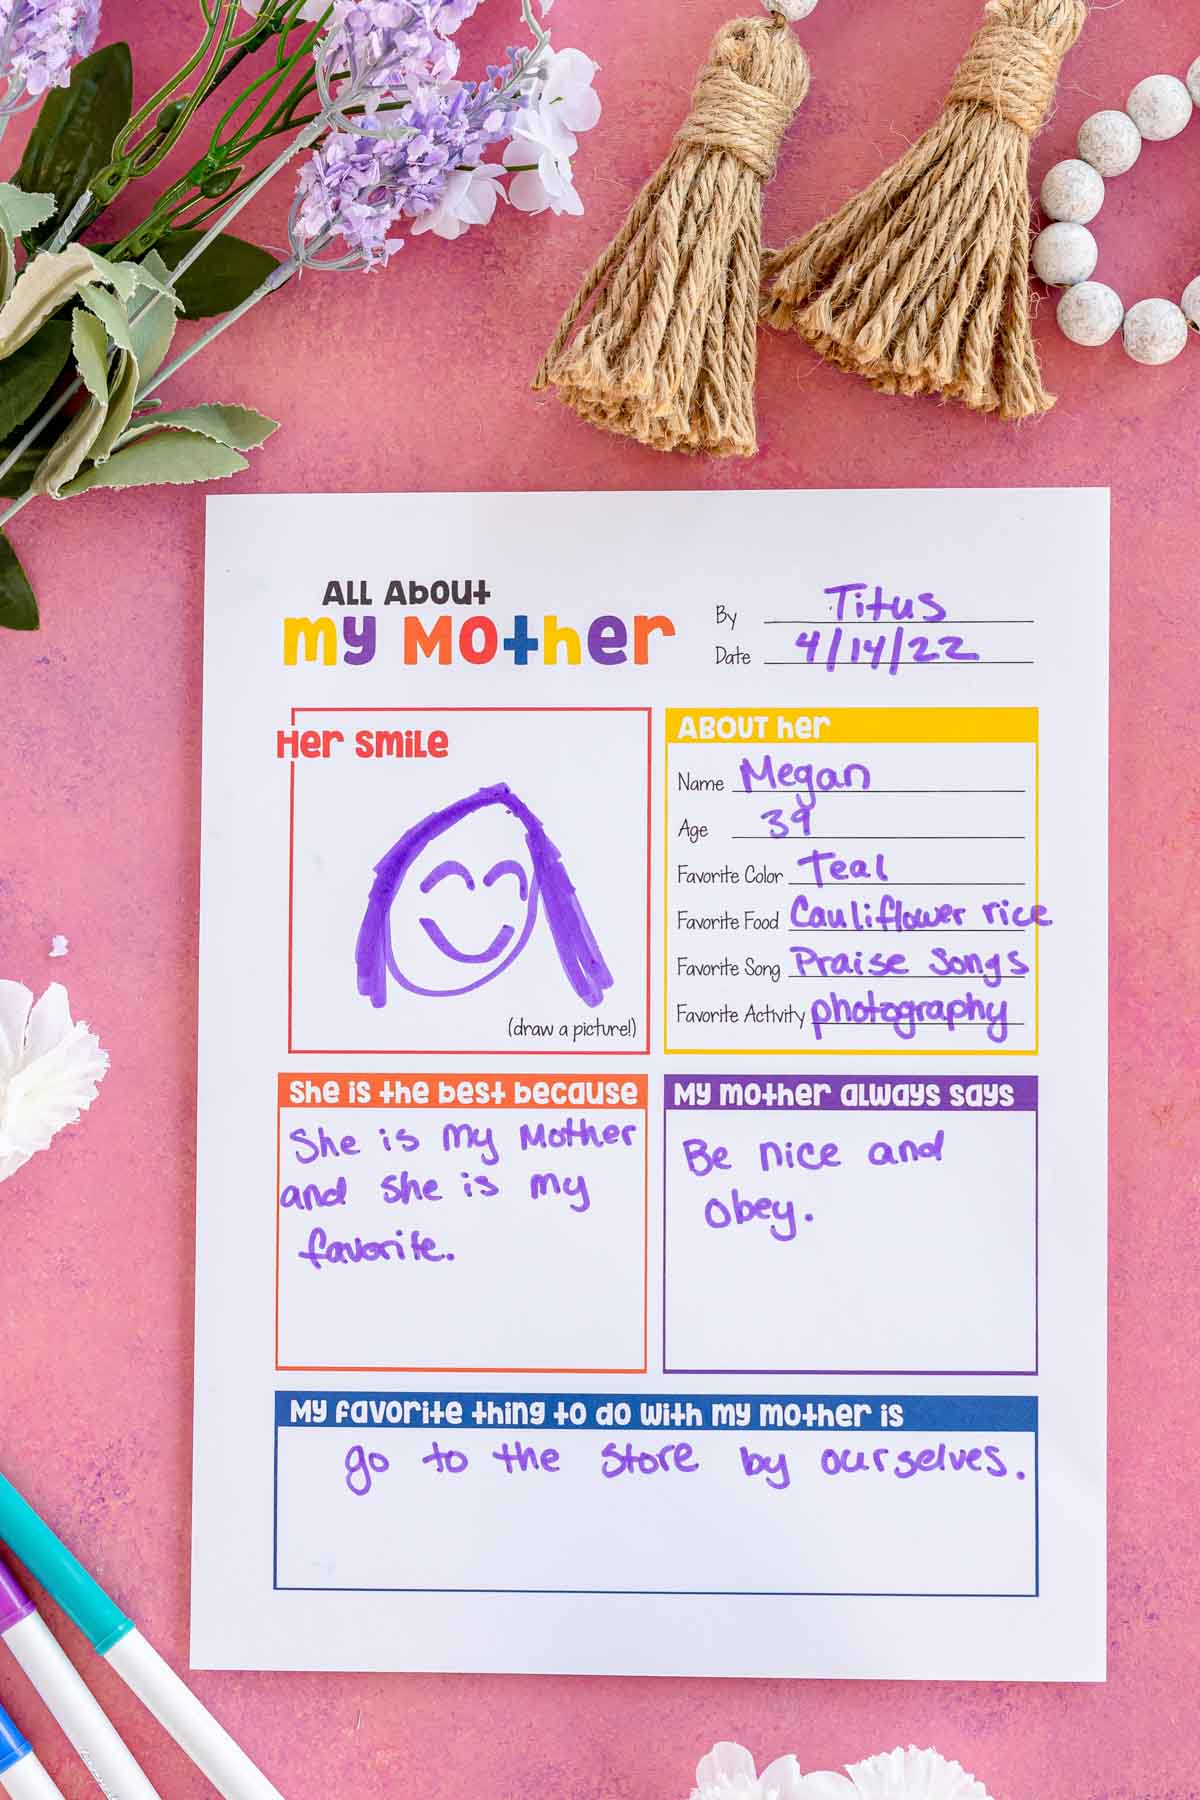 ALL About
my MOther
By Titus
Date 4/14/22
Her smile
(draw a picture!)
ABOUT her
Name Megan
Age 39
Favorite Color Teal
Favorite Food Cauliflower rice
Favorite Song Praise Songs
Favorite Activity photography
She is the best because
She is my Mother
and she is my
favorite.
My mother always says
Be nice and
obey.
My favorite thing to do with my mother is
go to the store by ourselves.